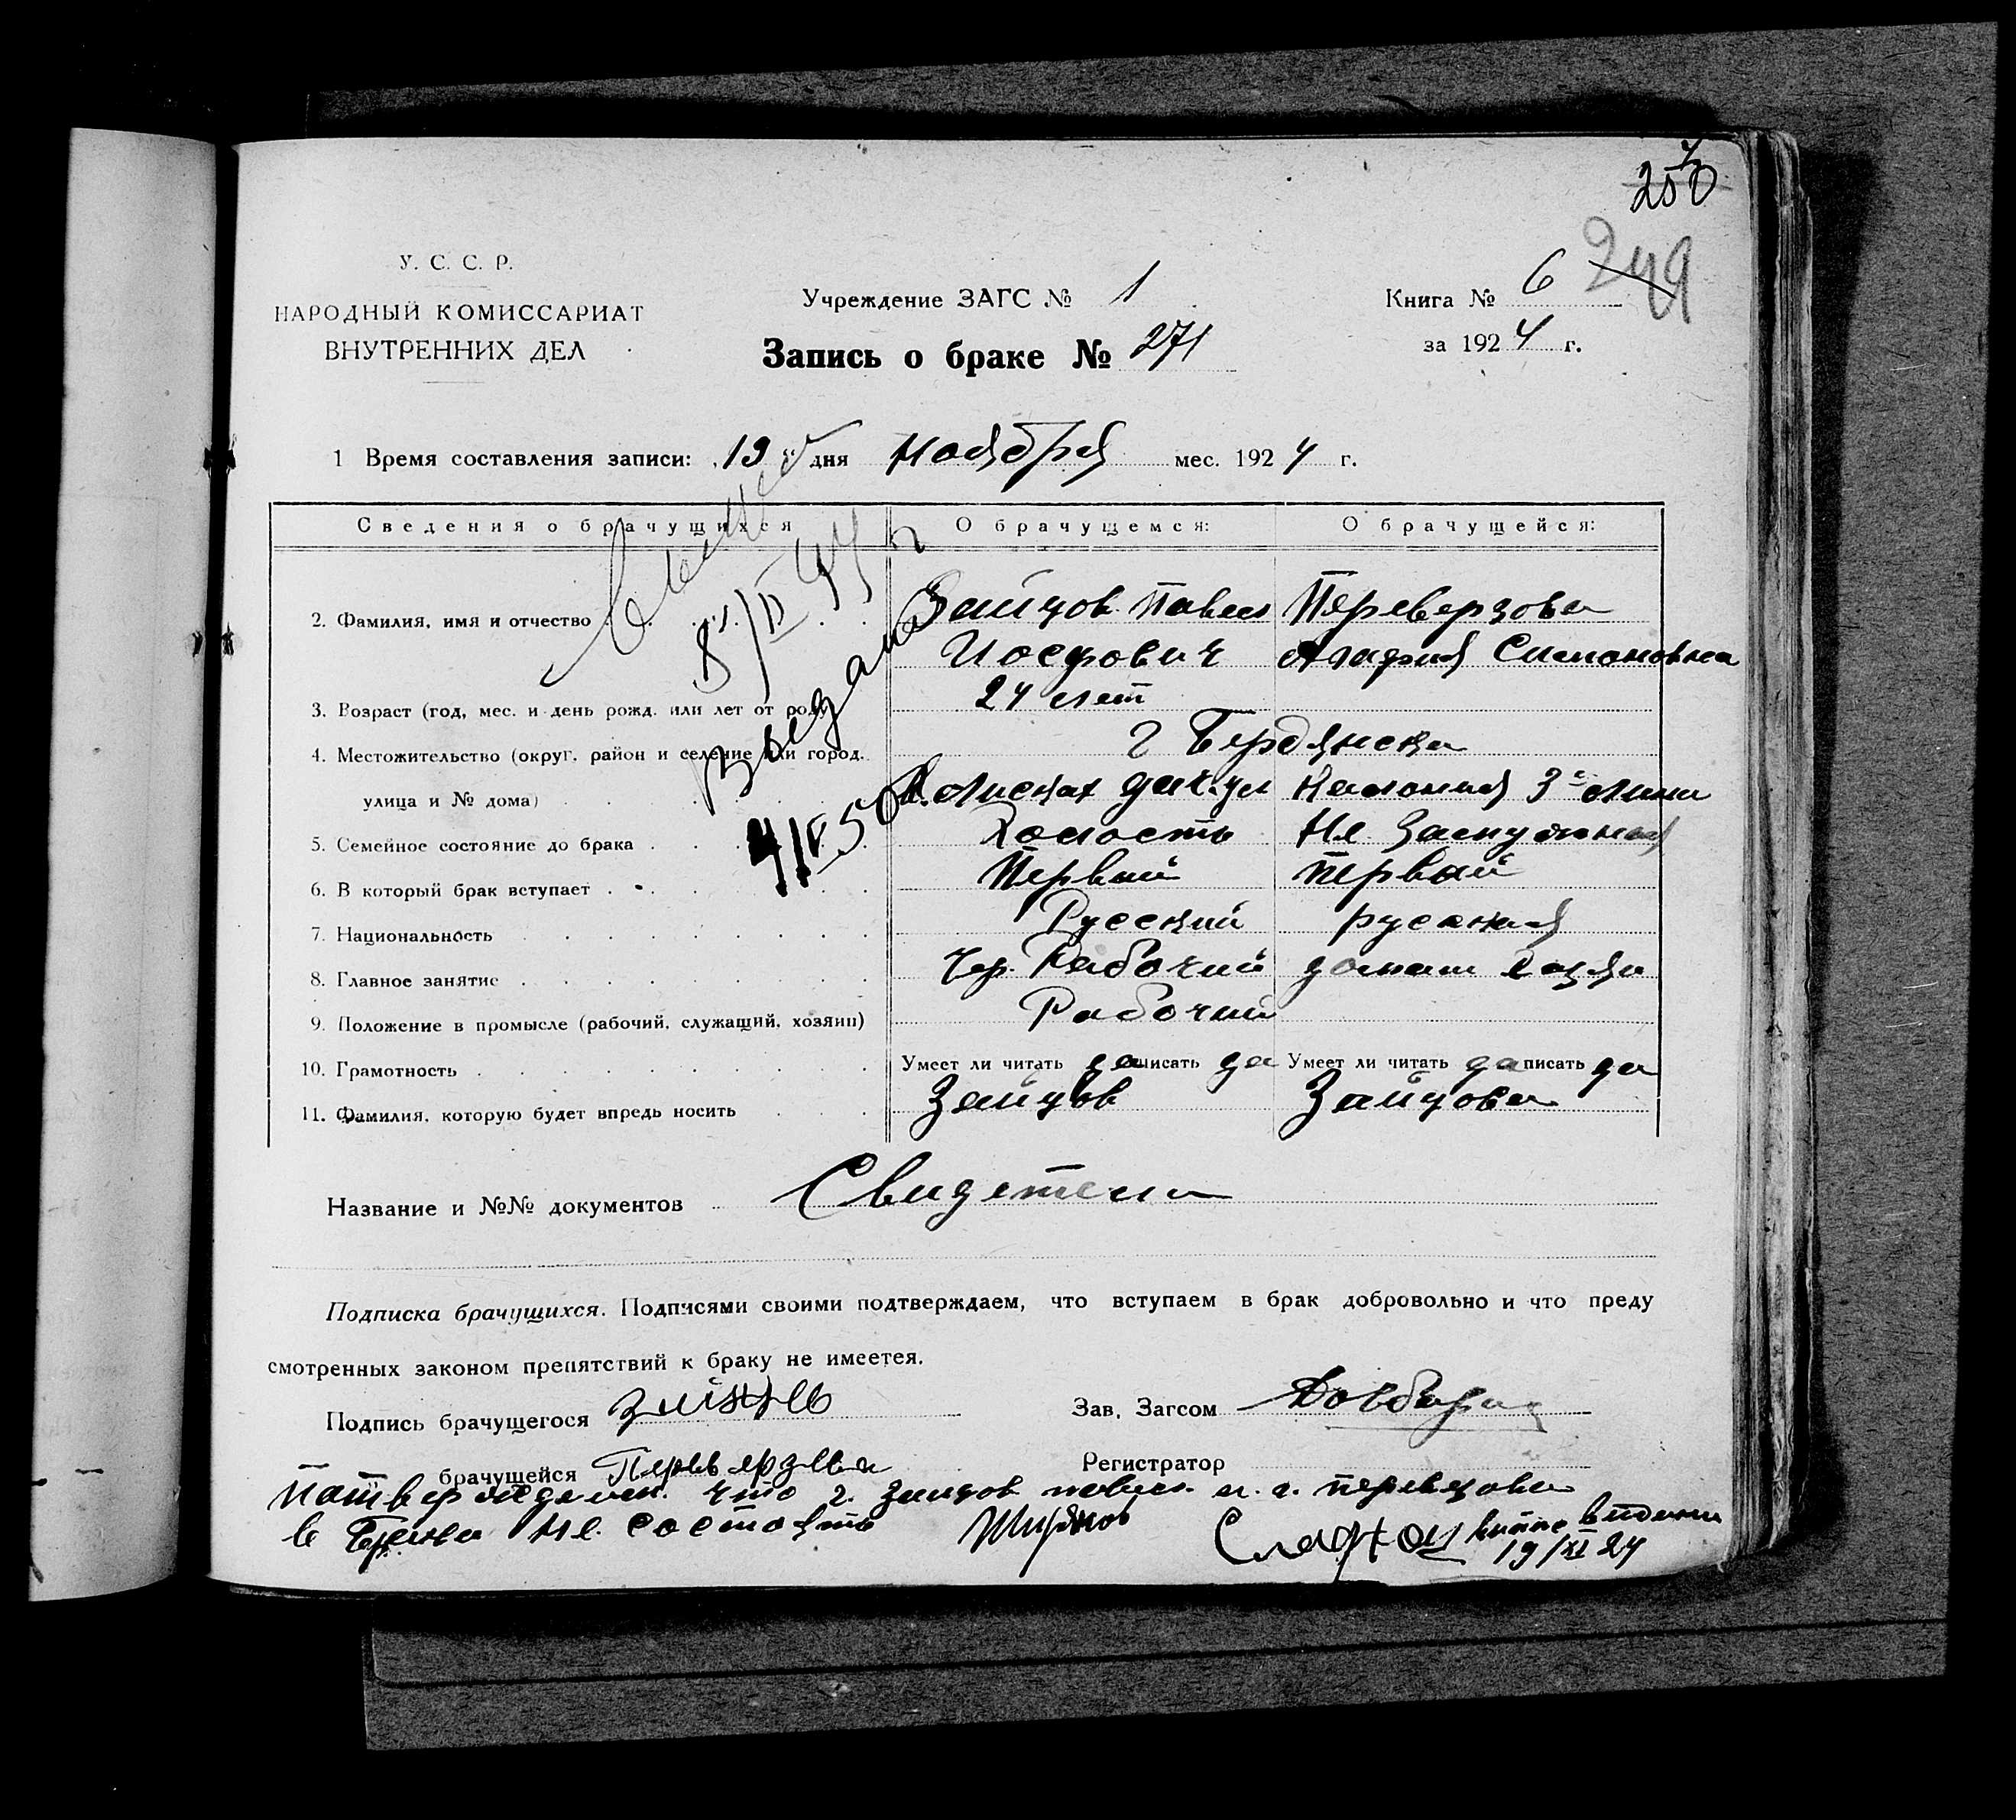 250
У. С. С. Р.
НАРОДНЫЙ КОМИССАРИАТ
ВНУТРЕННИХ ДЕЛ
Учреждение ЗАГС № 1
Запись о браке № 271
Книга № 6 249
за 1924 г.
1 Время составления записи: 19 дня ноября мес. 1924 г.
Сведения о брачущихся
О брачущемся:
О брачущейся:
2. Фамилия, имя и отчество
Зайцов Павел
Иосфович
Переверзова
Агафия Симоновна
3. Возраст (год, мес. и день рожд. или лет от роду
24 лет
4. Местожительство (округ, район и селение или город,
г Бердянска
улица и № дома)
Лисках дачи
Колония 3 линия
5. Семейное состояние до брака
Холость
Не Замужная
6. В который брак вступает
Первый
первый
7. Национальность
Русский
русская
8. Главное занятие
Чер. Рабочий
домаш
9. Положение в промысле (рабочий, служащий, хозяин)
Рабочий
10. Грамотность
Умеет ли читать да писать да
Умеет ли читать да писать да
11. Фамилия, которую будет впредь носить
Зайцов
Зайцова
8/II 44 г
Выдано
4/IV 50
Название и №№ документов Свидетели
Подписка брачущихся. Подписями своими подтверждаем, что вступаем в брак добровольно и что преду
смотренных законом препятствий к браку не имеется.
Подпись брачущегося Зайцев
Зав. Загсом
брачущейся Переверзева
Регистратор
что г. Зайцов Павел и г. Перевезова
в Браки не состоять
19/XI 24